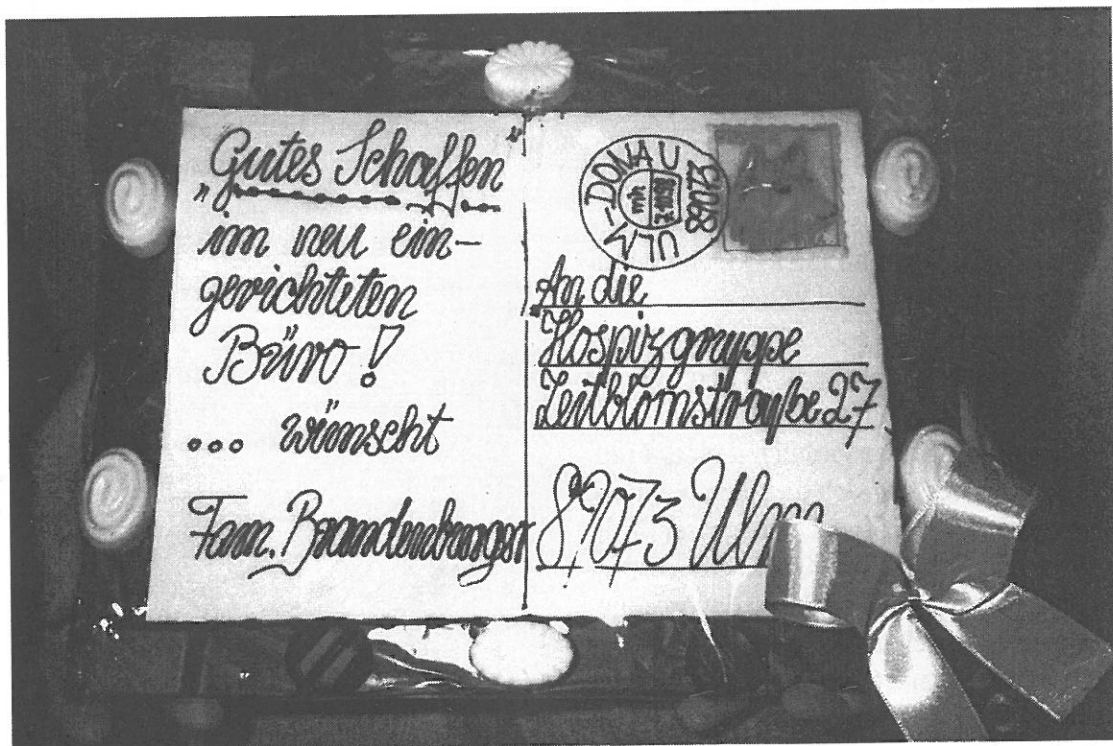 „Gutes Schaffen
im neu ein-
gerichteten
Büro!
... wünscht
Fam. Brandenburger
ULM-DONAU
89073
mh
An die
Hospizgruppe
Zeitblomstraße 27
89073 Ulm